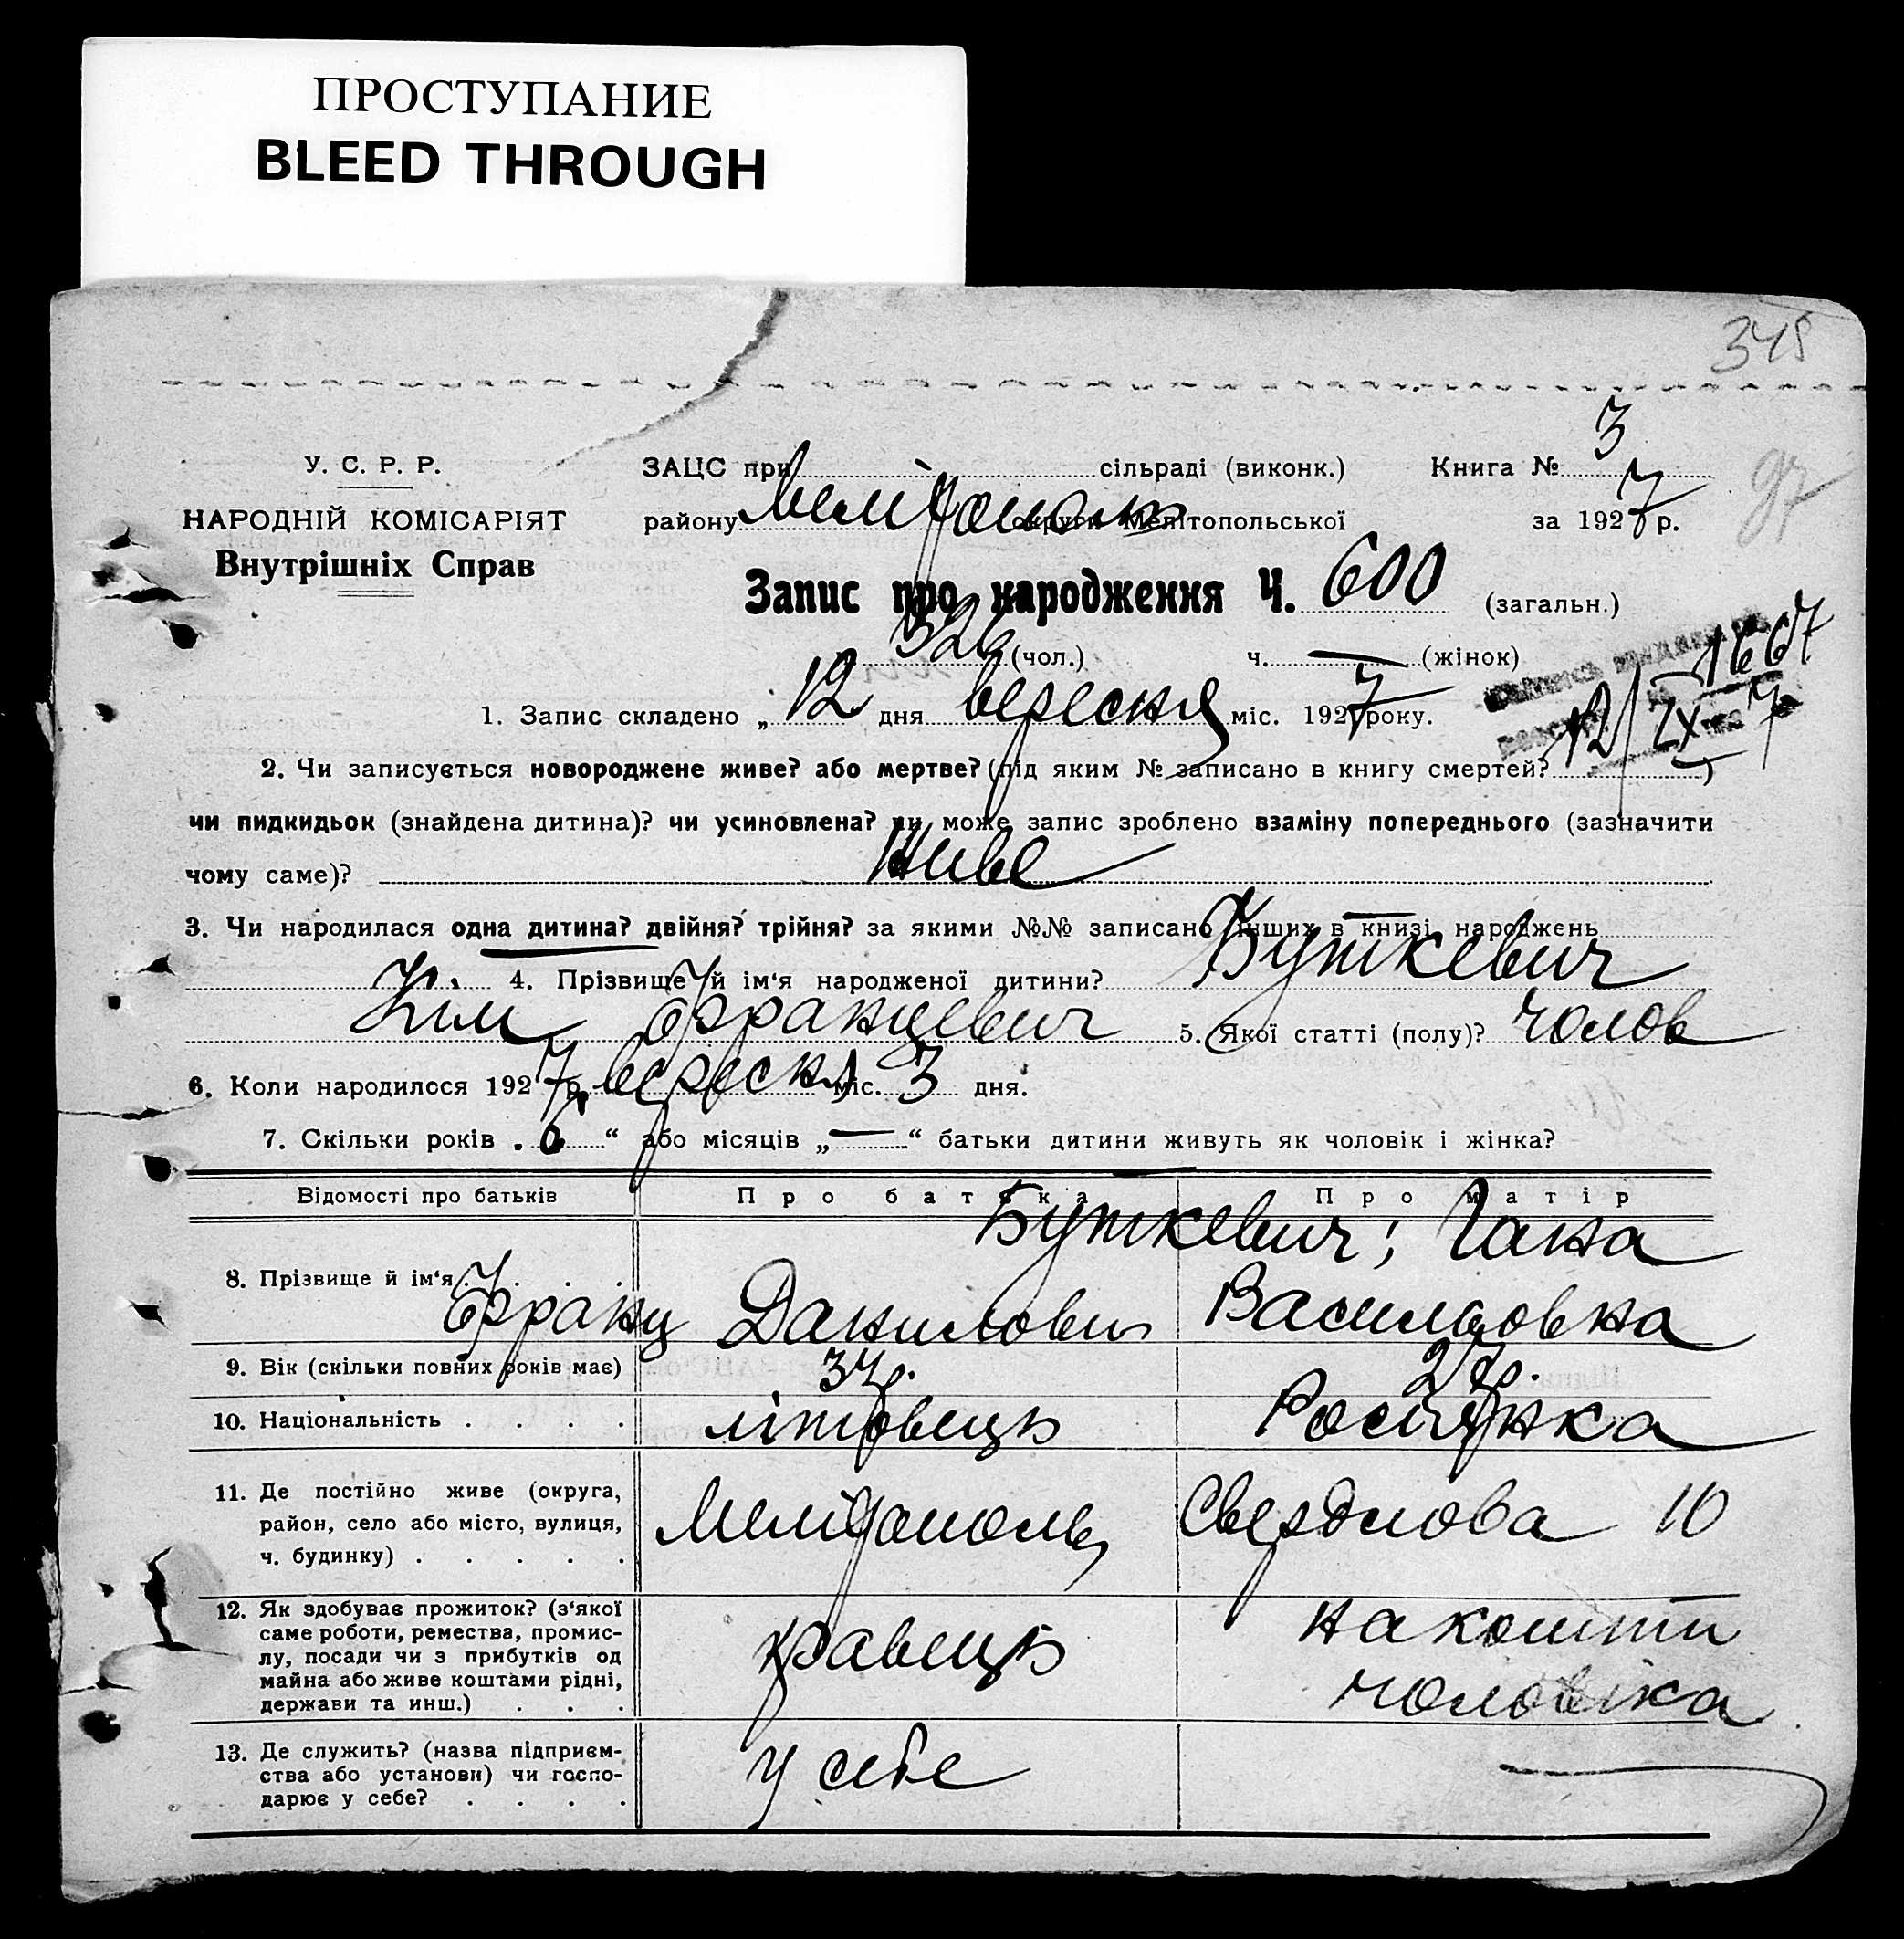 ПРОСТУПАНИЕ
BLEED THROUGH
345
97
У. С. Р. Р.
НАРОДНІЙ КОМІСАРІЯТ
Внутрішніх Справ
ЗАЦС при сільраді (виконк.) Книга № 3
району Мелітополь округи Мелітопольської за 1927 р.
Запис про народження Ч. 600 (загальн.)
326 (чол.) ч. — (жінок)
1667
12/IX 7
1. Запис складено „ 12 дня вересня міс. 1927 року.
2. Чи записується новороджене живе? або мертве? (під яким № записано в книгу смертей? )
чи пидкидьок (знайдена дитина)? чи усиновлена? чи може запис зроблено взаміну попереднього (зазначити
чому саме)? Живе
3. Чи народилася одна дитина? двійня? трійня? за якими №№ записано інших в книзі народжень
4. Прізвище й ім'я народженої дитини? Буткевич
Кім Францевич 5. Якої статті (полу)? чолов
6. Коли народилося 1927 р. вересня міс. 3 дня.
7. Скільки років „ 6 “ або місяців „ — “ батьки дитини живуть як чоловік і жінка?
Відомості про батьків Про батька Про матір
Буткевич; Гана
8. Прізвище й ім'я . . . . Франц Данилович Васильовна
9. Вік (скільки повних років має) 34р. 27р.
10. Національність . . . . літовець Росіянка
11. Де постійно живе (округа,
район, село або місто, вулиця,
ч. будинку) . . . . . Мелітополь, Свердлова 10
12. Як здобуває прожиток? (з'якої
саме роботи, ремества, промис-
лу, посади чи з прибутків од
майна або живе коштами рідні,
держави та инш.) . . . кравець на кошти
чоловіка
13. Де служить? (назва підприєм-
ства або установи) чи госпо-
дарює у себе? . . . . у себе —